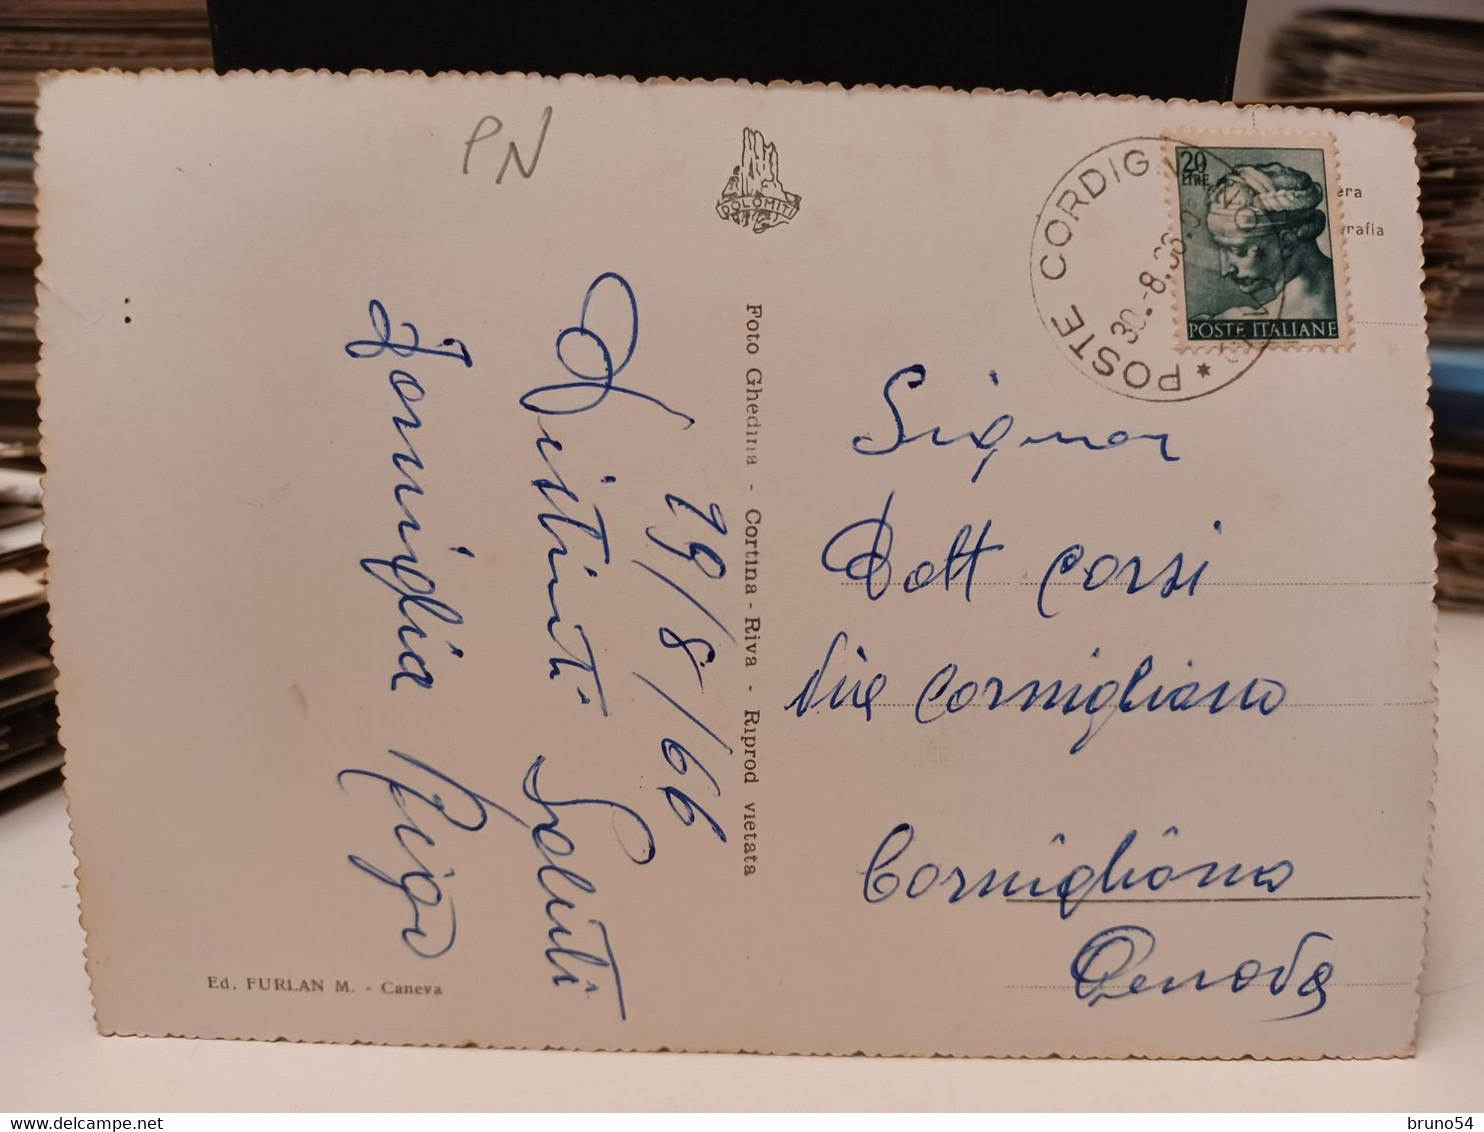 PN
DOLOMITI
POSTE CORDIGNANO
30.-8.66
20
LIRE
POSTE ITALIANE
era
rafia
19/8/66
Distinti Saluti
Famiglia Rigo
Foto Ghedina - Cortina - Riva - Riprod vietata
Signor
Dott Corsi
Via Cornigliano
Cornigliano
Genova
Ed. FURLAN M. - Caneva
bruno54